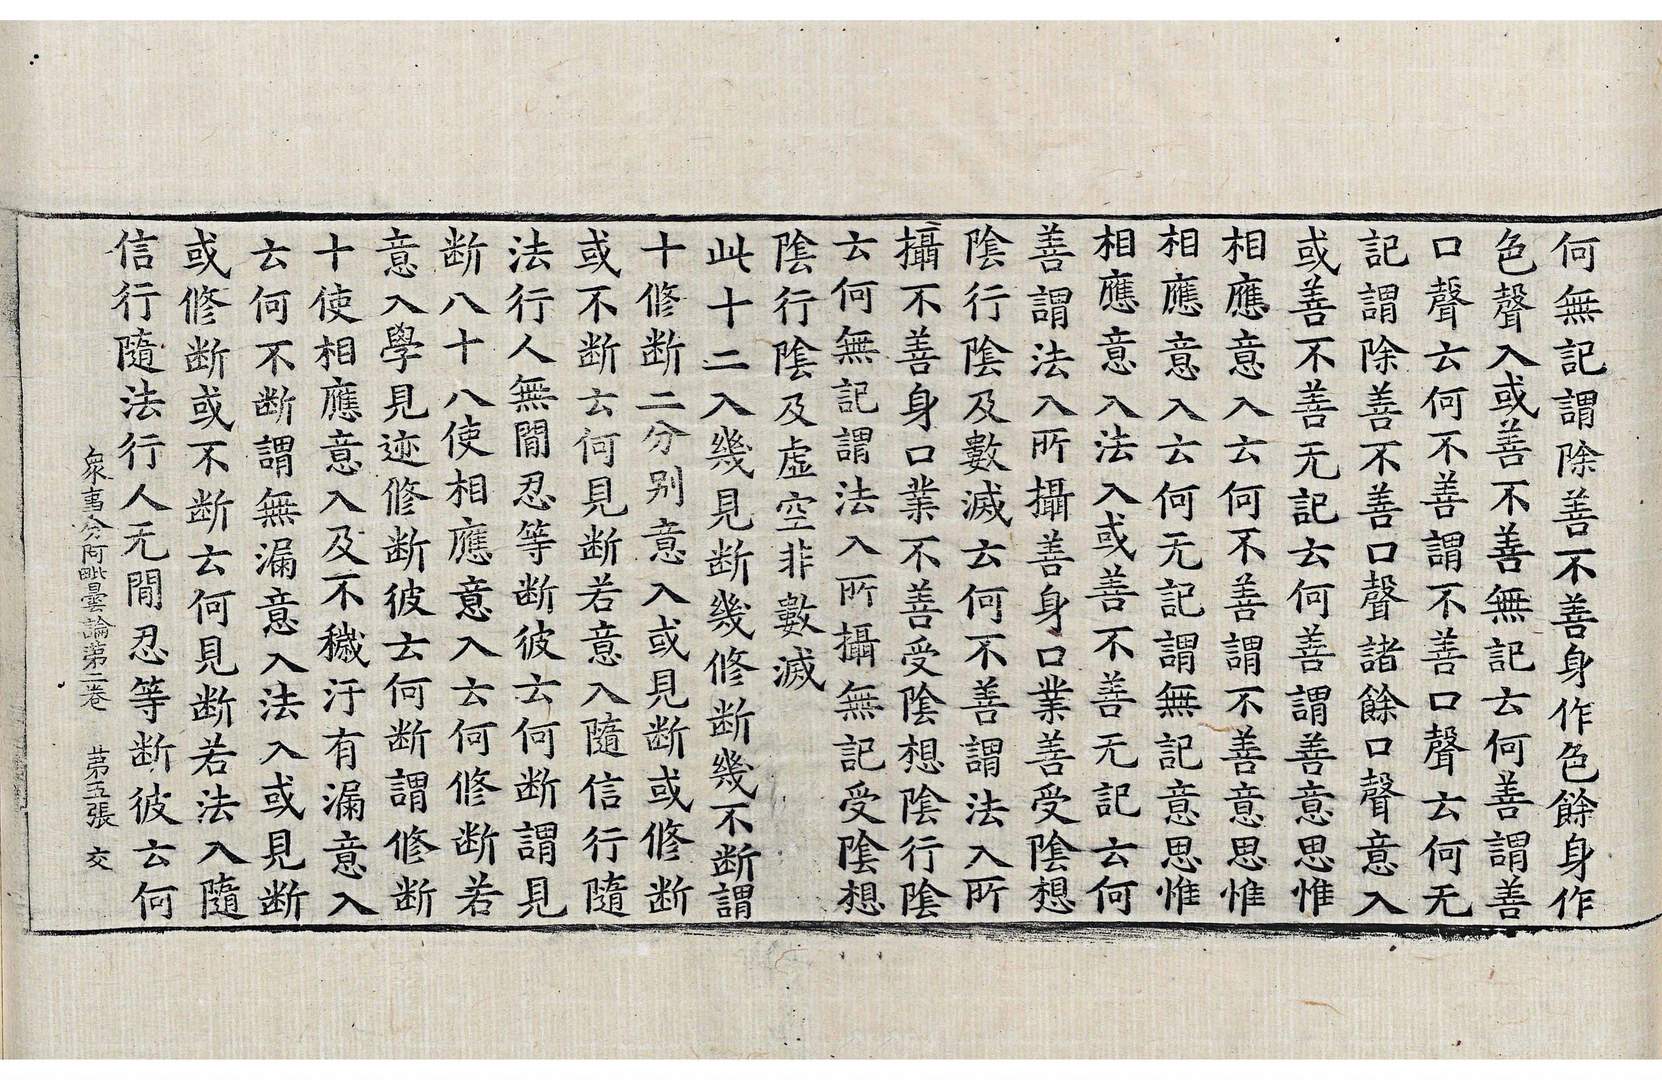 何無記謂除善不善身作色餘身作
色聲入或善不善無記云何善謂善
口聲云何不善謂不善口聲云何无
記謂除善不善口聲諸餘口聲意入
或善不善无記云何善謂善意思惟
相應意入云何不善謂不善意思惟
相應意入云何无記謂無記意思惟
相應意入法入或善不善无記云何
善謂法入所攝善身口業善受陰想
陰行陰及數滅云何不善謂法入所
攝不善身口業不善受陰想陰行陰
云何無記謂法入所攝無記受陰想
陰行陰及虛空非數滅
此十二入幾見断幾修断幾不断謂
十修断二分別意入或見断或修断
或不断云何見断若意入隨信行隨
法行人無閒忍等断彼云何断謂見
断八十八使相應意入云何修断若
意入學見迹修断彼云何断謂修断
十使相應意入及不穢汙有漏意入
云何不断謂無漏意入法入或見断
或修断或不断云何見断若法入隨
信行隨法行人无閒忍等断彼云何
衆事分阿毗曇論第二卷 苐五張 交